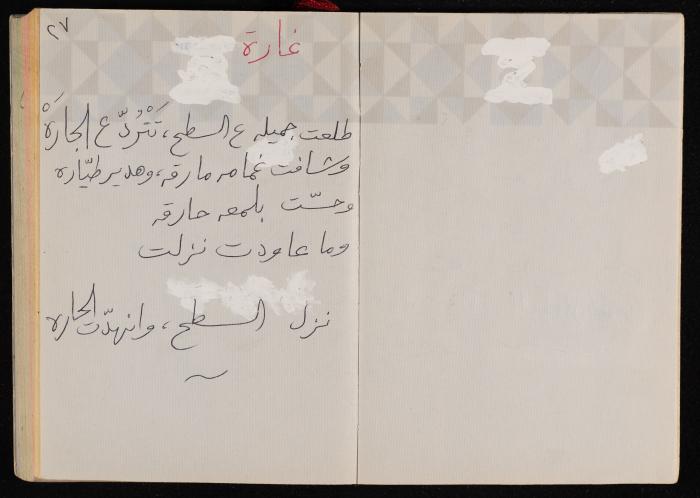 ٢٧
غارة
طلعت جميله ع السطح، تَتْرُدّ ع الجارَهْ
وشافت غمامه مارقه، وهدير طيّاره
وحسّت بلمعه حارقه
وما عاودت نزلت
نزل السطح، وانهدّت الحاره